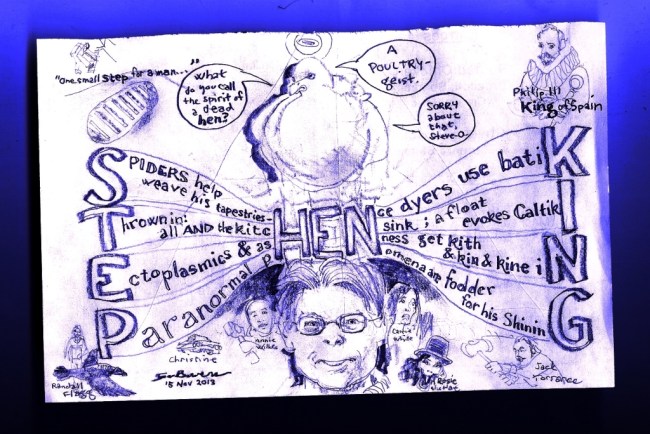 "One small step for a man..."
What
do you call
the spirit of
a dead
hen?
A
POULTRY-
geist.
SORRY
about
that,
Steve-O.
Philip III
King of Spain
STEP HEN KING
SPIDERS help
weave his tapestries -
ce dyers use batiK
Thrown in:
all AND the kitc
sink; a float
evokes CaltikI
Ectoplasmics & as
ness get kith
& kin & kine iN
Paranormal p
omena are fodder
for his ShininG
Annie Wilkes
Carrie White
Christine
Randall
Flagg
Rose
the Hat
Jack
Torrance
15 Nov 2013